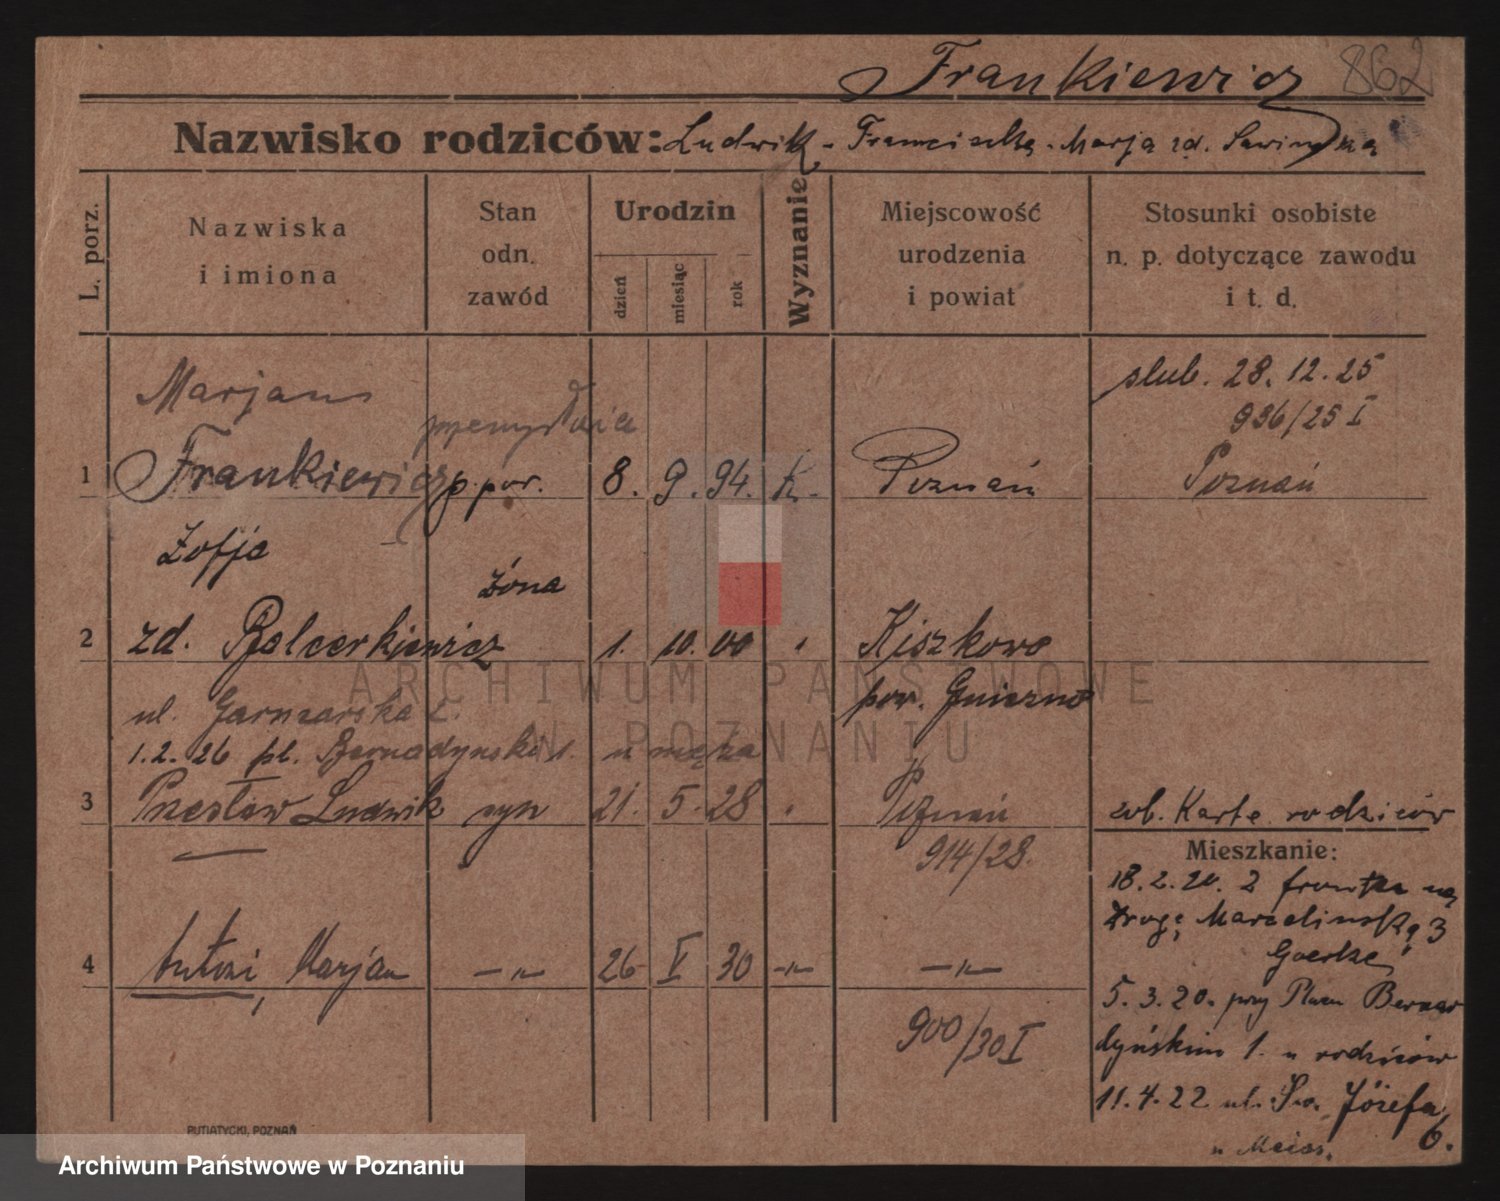 Frankiewicz 862
Nazwisko rodziców: Ludwik - Franciszka - Marja zd.
L. porz.
Nazwiska
i imiona
Stan
odn.
zawód
Urodzin
dzień
miesiąc
rok
Wyznanie
Miejscowość
urodzenia
i powiat
Stosunki osobiste
n. p. dotyczące zawodu
i t. d.
Marjan
przemysłowiec
ślub. 28. 12. 25
936/25 I
1 Frankiewicz p por. 8. 9. 94. K. Poznań Poznań
Zofja
żona
2 zd. Balcerkiewicz 1. 10. 00 " Kiszkowo
pow. Gniezno
ul. Garncarska 2.
1.2.26 pl. Bernadyński 1. u męża
3 Przesław Ludwik syn 21. 5. 28 " Poznań zob. Kartę rodziców
914/28.
Mieszkanie:
18. 2. 20. z frontu na
Drogę Marcelińską 3
4 Antoni, Marjan -"- 26 V 30 -"- -"-
900/30 I
5. 3. 20. przy Placu Bernar
dyńskim 1. u rodziców
11. 4. 22 ul. Św. Józefa
6.
PUTIATYCKI, POZNAŃ
ARCHIWUM PAŃSTWOWE
W POZNANIU
Archiwum Państwowe w Poznaniu